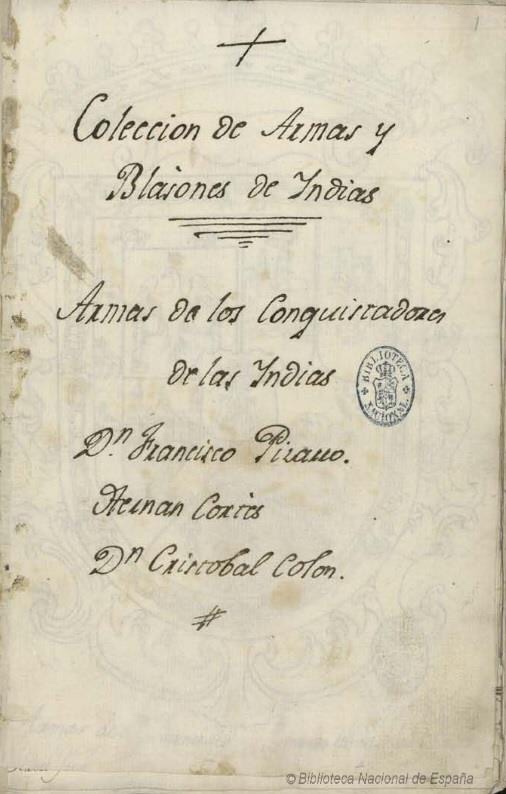 1
Coleccion de Armas y
Blasones de Indias
Armas de los Conquistadores
de las Indias
Dn. Francisco Pizarro.
Hernan Cortès
Dn Cristobal Colon.
#
BIBLIOTECA NACIONAL.
Armas de
© Biblioteca Nacional de España